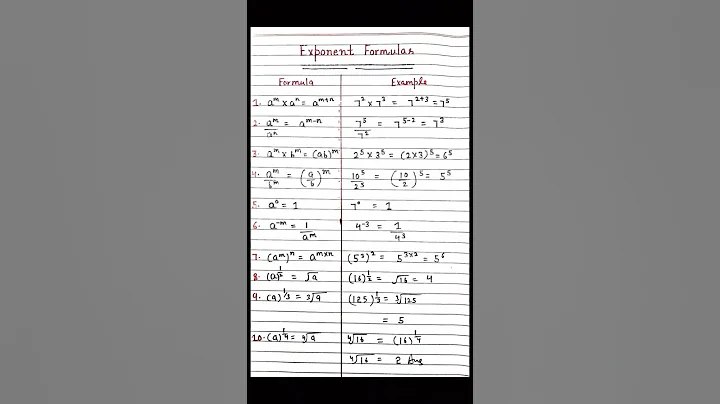 Exponent Formulas
Formula Example
1. aᵐ × aⁿ = aᵐ⁺ⁿ 7² × 7³ = 7²⁺³ = 7⁵
2. aᵐ/aⁿ = aᵐ⁻ⁿ 7⁵/7² = 7⁵⁻² = 7³
3. aᵐ × bᵐ = (ab)ᵐ 2⁵ × 3⁵ = (2×3)⁵ = 6⁵
4. aᵐ/bᵐ = (a/b)ᵐ 10⁵/2⁵ = (10/2)⁵ = 5⁵
5. a⁰ = 1 7⁰ = 1
6. a⁻ᵐ = 1/aᵐ 4⁻³ = 1/4³
7. (aᵐ)ⁿ = aᵐˣⁿ (5³)² = 5³ˣ² = 5⁶
8. (a)^½ = √a (16)^½ = √16 = 4
9. (a)^⅓ = ³√a (125)^⅓ = ³√125
= 5
10. (a)^¼ = ⁴√a ⁴√16 = (16)^¼
⁴√16 = 2 Ans